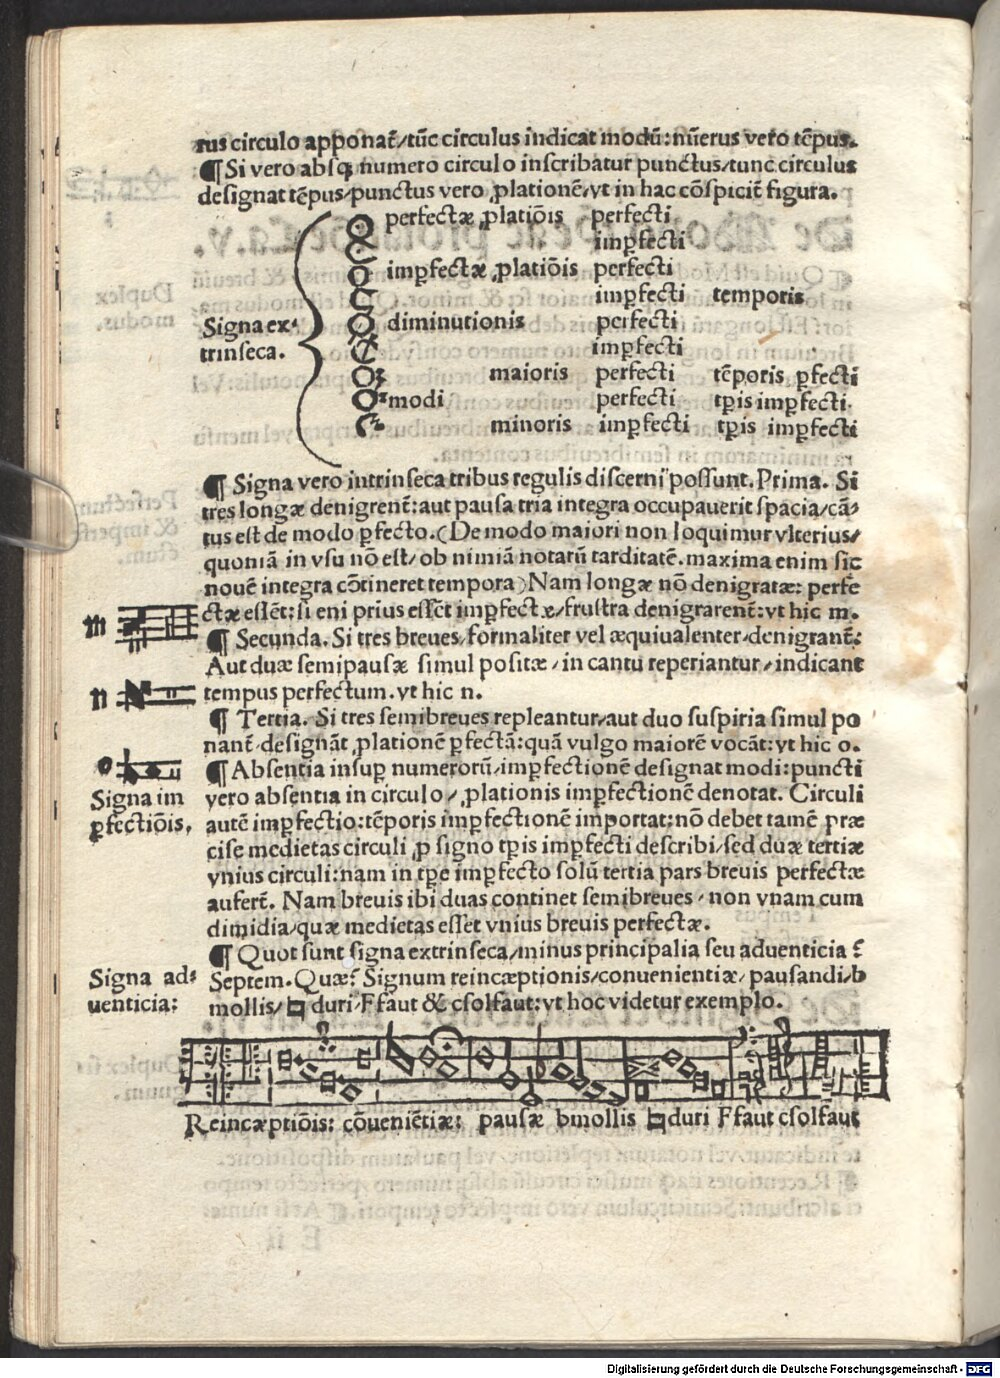 rus circulo apponat᷑/tūc circulus indicat modū: nūerus vero tēpus.
¶ Si vero absq̨ numero circulo inscribatur punctus/tunc circulus
designat tēpus/punctus vero ꝓlationē/vt in hac cōspicit᷑ figura.
perfectæ ꝓlatiōis perfecti
imꝑfecti
imꝑfectæ ꝓlatiōis perfecti
imꝑfecti temporis
Signa ex⸗ diminutionis perfecti
trinseca. imꝑfecti
maioris perfecti tēporis ꝑfecti
modi perfecti tꝑis imꝑfecti.
minoris imꝑfecti tꝑis imꝑfecti
¶ Signa vero intrinseca tribus regulis discerni possunt. Prima. Si
tres longæ denigrent᷑: aut pausa tria integra occupauerit spacia/cā⸗
tus est de modo ꝑfecto. (De modo maiori non loquimur vlterius/
quoniā in vsu nō est/ob nimiā notarū tarditatē. maxima enim sic
nouē integra cōtineret tempora) Nam longæ nō denigratæ: perfe
ctæ essēt: si eni prius essēt imꝑfectæ/frustra denigrarent᷑: vt hic m.
m
¶ Secunda. Si tres breues/formaliter vel æquiualenter/denigrant᷑:
Aut duæ semipausæ simul positæ/in cantu reperiantur/indicant
n tempus perfectum. vt hic n.
¶ Tertia. Si tres semibreues repleantur/aut duo suspiria simul po
nant᷑ designāt ꝓlationē ꝑfectā: quā vulgo maiorē vocāt: vt hic o.
o ¶ Absentia insuꝑ numerorū/imꝑfectionē designat modi: puncti
Signa im vero absentia in circulo/ꝓlationis imꝑfectionē denotat. Circuli
ꝑfectiōis, autē imꝑfectio: tēporis imꝑfectionē importat: nō debet tamē præ
cise medietas circuli ꝓ signo tꝑis imꝑfecti describi/sed duæ tertiæ
vnius circuli: nam in tꝑe imꝑfecto solū tertia pars breuis perfectæ
aufert᷑. Nam breuis ibi duas continet semibreues/non vnam cum
dimidia/quæ medietas esset vnius breuis perfectæ.
¶ Quot sunt signa extrinseca/minus principalia seu aduenticia?
Signa ad⸗ Septem. Quæ? Signum reincæptionis/conuenientiæ/pausandi/b
uenticia: mollis/♮ duri/Ffaut & csolfaut: vt hoc videtur exemplo.
Reincæptiōis: cōueniētiæ: pausæ bmollis ♮duri Ffaut csolfaut
Digitalisierung gefördert durch die Deutsche Forschungsgemeinschaft - DFG